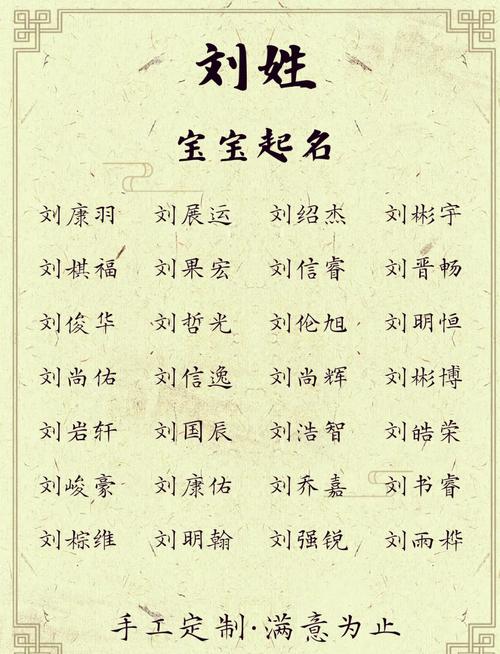 刘姓
宝宝起名
刘康羽 刘展运 刘绍杰 刘彬宇
刘棋福 刘果宏 刘信睿 刘晋畅
刘俊华 刘哲光 刘伦旭 刘明恒
刘尚佑 刘信逸 刘尚辉 刘彬博
刘岩轩 刘国辰 刘浩智 刘皓荣
刘峻豪 刘康佑 刘乔嘉 刘书睿
刘棕维 刘明翰 刘强锐 刘雨桦
手工定制·满意为止